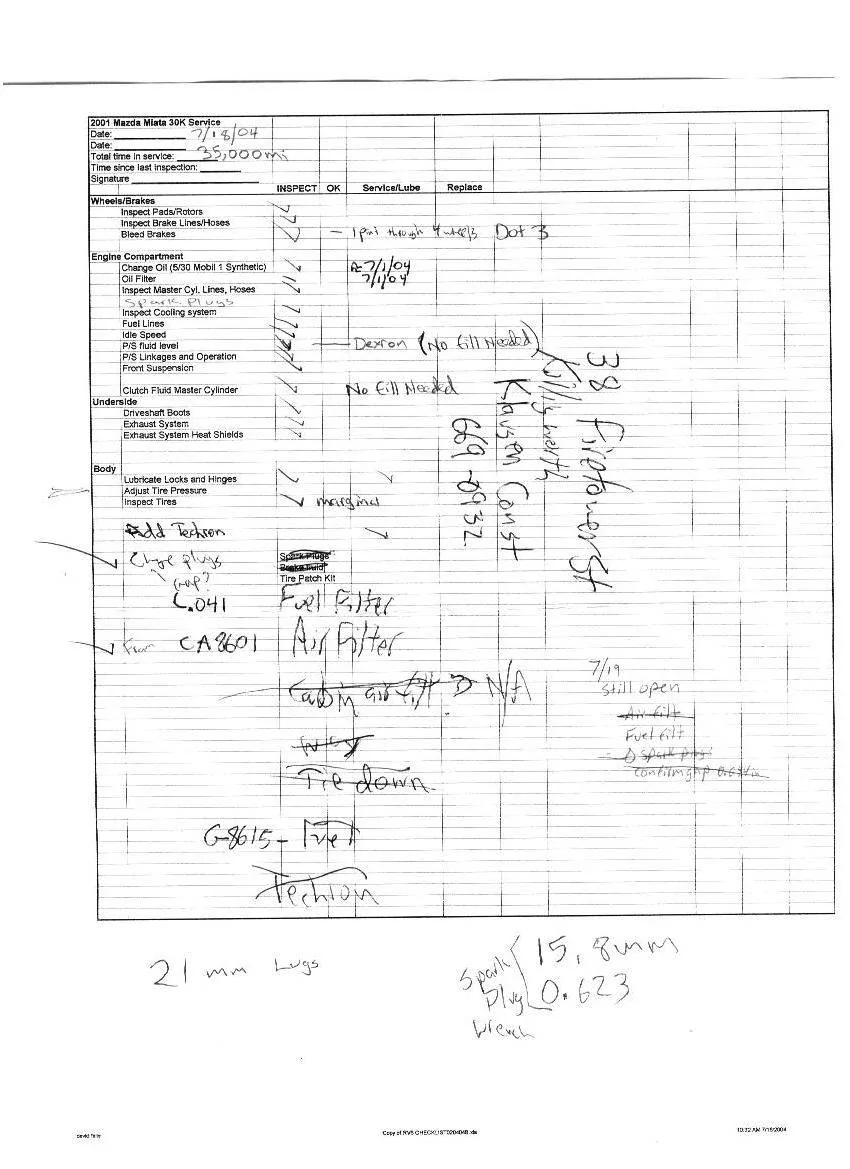 2001 Mazda Miata 30K Service
Date: 7/18/04
Date:
Total time in service: 35,000mi
Time since last inspection:
Signature
INSPECT OK Service/Lube Replace
Wheels/Brakes
Inspect Pads/Rotors
Inspect Brake Lines/Hoses
Bleed Brakes – 1 pint through 4 wheels Dot 3
Engine Compartment
Change Oil (5/30 Mobil 1 Synthetic) 7/1/04
Oil Filter 7/1/04
Inspect Master Cyl. Lines, Hoses
Spark Plugs
Inspect Cooling system
Fuel Lines
Idle Speed
P/S fluid level — Dexron (No fill Needed)
P/S Linkages and Operation
Front Suspension
Clutch Fluid Master Cylinder No fill Needed
Underside
Driveshaft Boots
Exhaust System
Exhaust System Heat Shields
38 Firetower St
Killingworth
Klausen Const
669-0932
Body
Lubricate Locks and Hinges
Adjust Tire Pressure
Inspect Tires marginal
Add Techron
Change plugs
Spark Plugs
Brake Fluid
Tire Patch Kit
Gap?
.041 Fuel Filter
Fram CA8601 Air Filter
Cabin air filt N/A
Tie down
G-8615 - Fuel
Techron
7/19
Still open
Air filt
Fuel filt
Spark plugs
confirm gap
21 mm Lugs
Spark Plug Wrench
15.8mm
0.623
david fahy
Copy of RV6 CHECKLIST020404B.xls
10:32 AM 7/18/2004